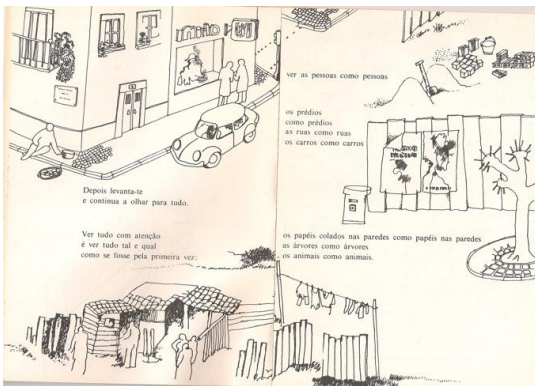 Depois levanta-te
e continua a olhar para tudo.
Ver tudo com atenção
é ver tudo tal e qual
como se fosse pela primeira vez:
ver as pessoas como pessoas
os prédios
como prédios
as ruas como ruas
os carros como carros
os papéis colados nas paredes como papéis nas paredes
as árvores como árvores
os animais como animais.